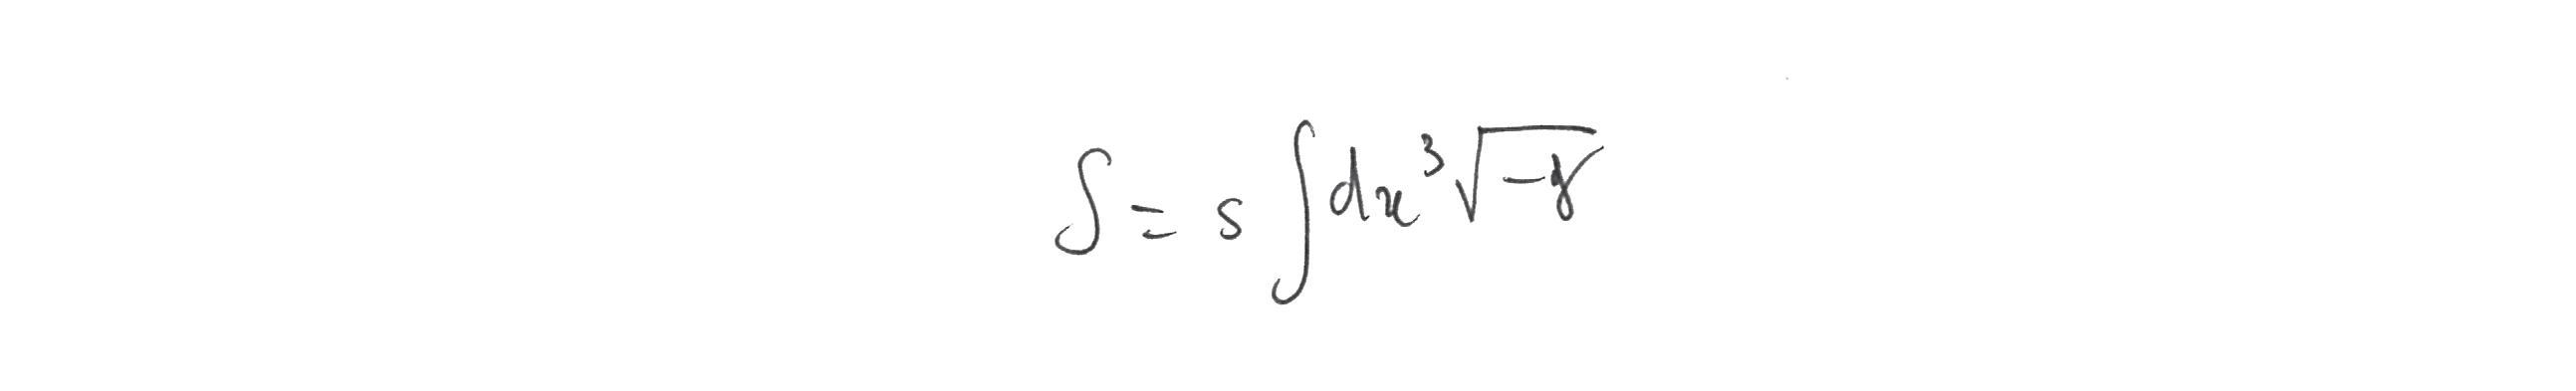 S = s ∫ dx³ √(-γ)